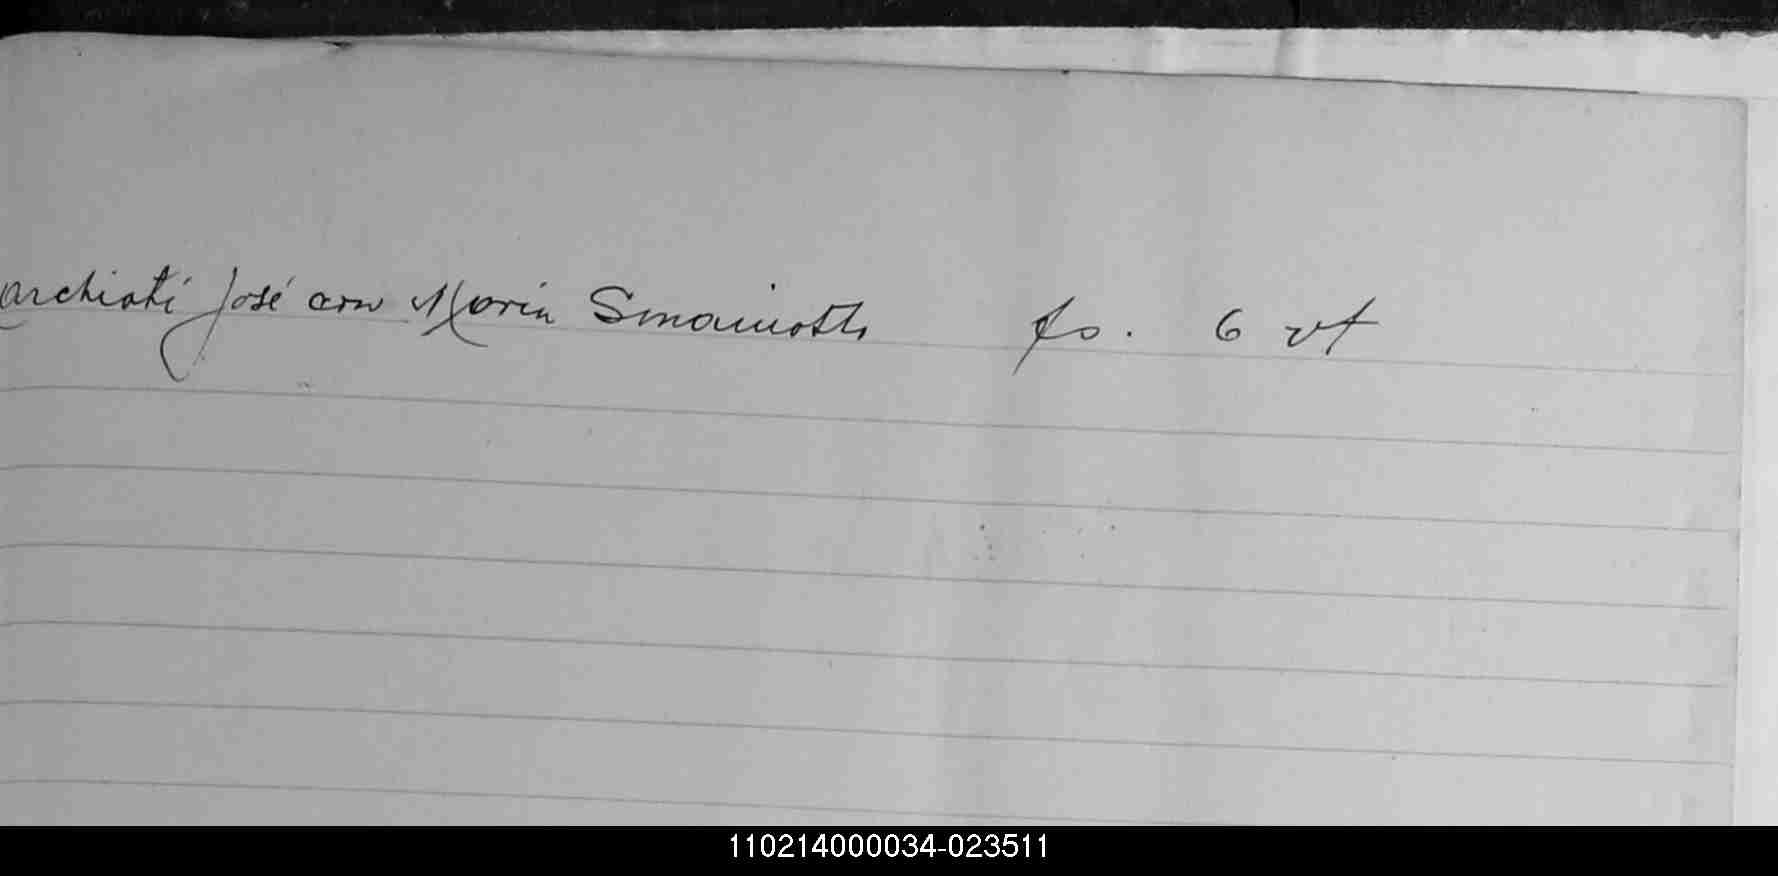 archiati José con Maria Smainotto fs. 6 vt
110214000034-023511